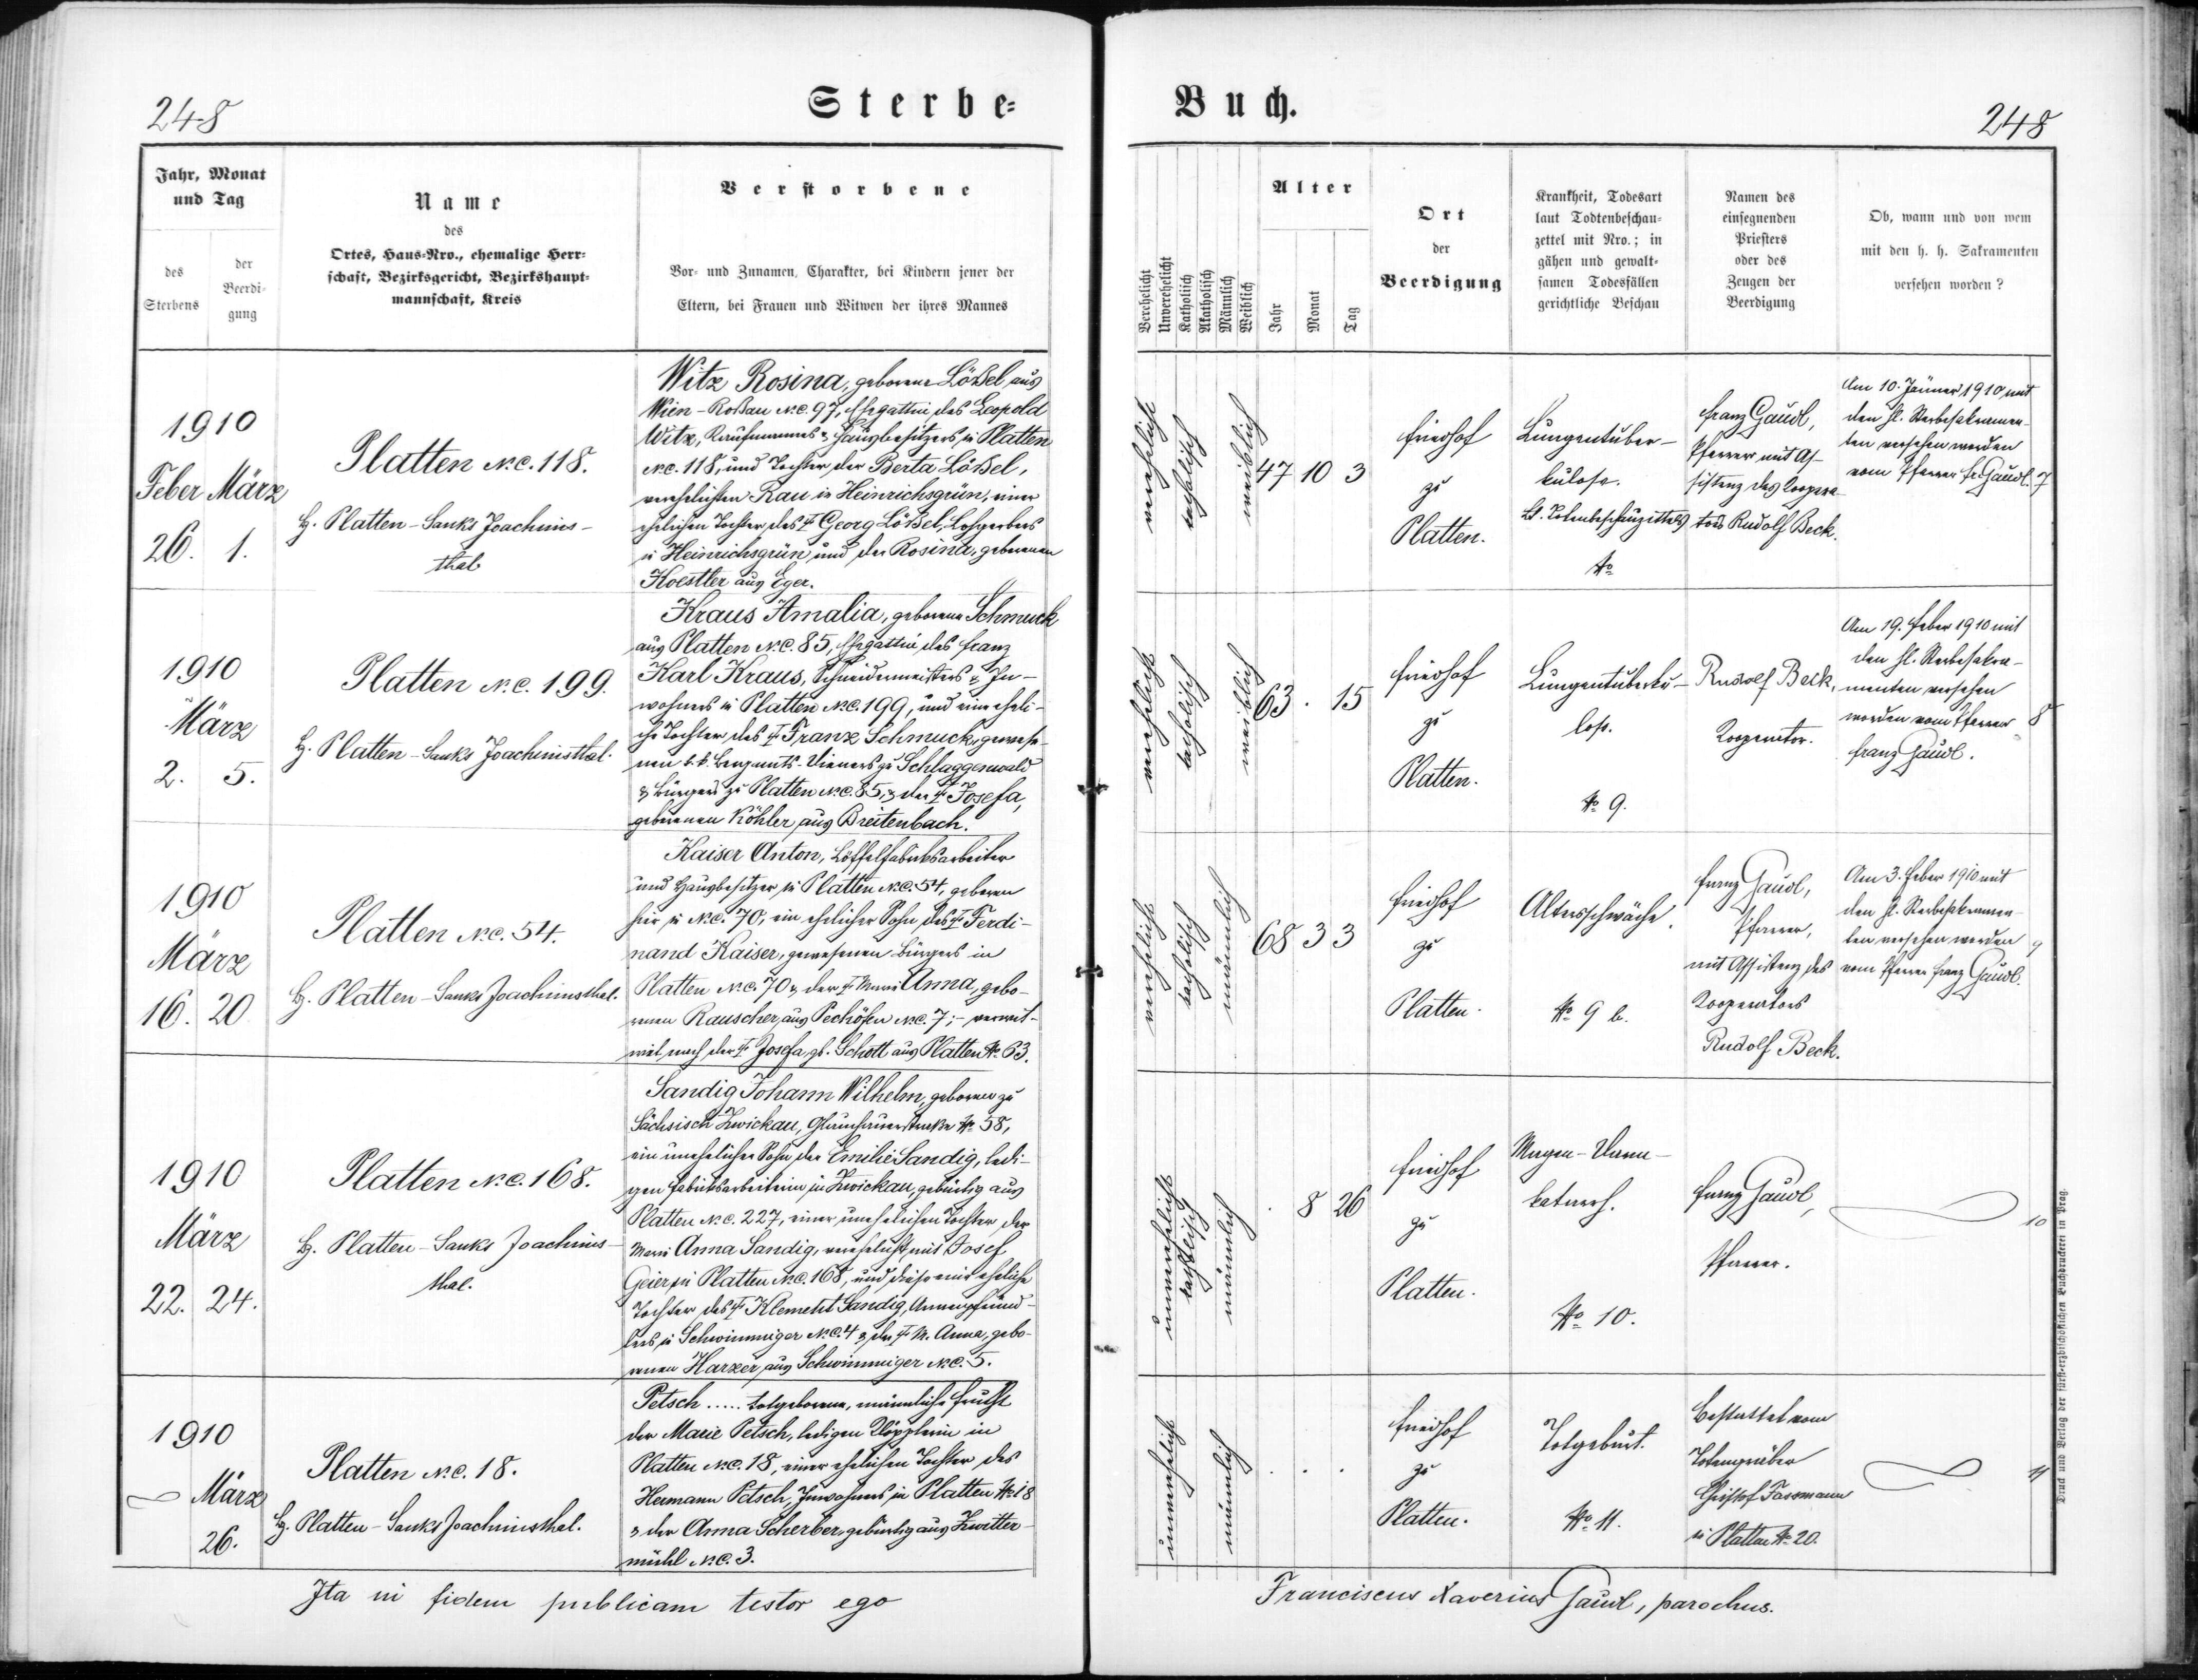 248
Sterbe-
Jahr, Monat
und Tag
des
Sterbens
der
Beerdi-
gung
Name
des
Ortes, Haus-Nro., ehemalige Herr-
schaft, Bezirksgericht, Bezirkshaupt-
mannschaft, Kreis
Verstorbene
Vor- und Zunamen, Charakter, bei Kindern jener der
Eltern, bei Frauen und Witwen der ihres Mannes
1910
Feber März
26. 1.
Platten N.C. 118.
H. Platten-Sankt Joachims-
thal
Witz Rosina, geborene Lößel aus
Wien-Roßau N.C. 97, Ehegattin des Leopold
Witz, Kaufmannes & Hausbesitzers in Platten
N.C. 118, und Tochter der Berta Lößel,
verehelichten Rau in Heinrichsgrün, einer
ehelichen Tochter des † Georg Lößel, Lohgerbers
in Heinrichsgrün und der Rosina, geborenen
Koestler aus Eger.
1910
März
2. 5.
Platten N.C. 199.
H. Platten-Sankt Joachimsthal.
Kraus Amalia, geborene Schmuck
aus Platten N.C. 85, Ehegattin des Franz
Karl Kraus, Schneidermeisters & In-
wohners in Platten N.C. 199, und eine eheli-
che Tochter des † Franz Schmuck, gewese-
nen k.k. Bergamts-Dieners zu Schlaggenwald
& Bürgers zu Platten N.C. 85, & der † Josefa,
geborenen Köhler aus Breitenbach.
1910
März
16. 20
Platten N.C. 54.
H. Platten-Sankt Joachimsthal.
Kaiser Anton, Löffelfabriksarbeiter
und Hausbesitzer in Platten N.C. 54, geboren
hier in N.C. 70, ein ehelicher Sohn des † Ferdi-
nand Kaiser, gewesenen Bürgers in
Platten N.C. 70 & der † Mari Anna, gebo-
renen Rauscher aus Pechöfen N.C. 7; - verwit-
wet nach der † Josefa, gb. Schott aus Platten № 63.
1910
März
22. 24.
Platten N.C. 168.
H. Platten-Sankt Joachims-
thal.
Sandig Johann Wilhelm, geboren zu
Sächsisch Zwickau, Glauchauerstraße № 58,
ein unehelicher Sohn der Emilie Sandig, ledi-
gen Fabriksarbeiterin in Zwickau, gebürtig aus
Platten N.C. 227, einer unehelichen Tochter der
Mari Anna Sandig, verehelicht mit Josef
Geier in Platten N.C. 168, und diese eine eheliche
Tochter des † Klement Sandig,
in Schwimmiger N.C. 4 & der † M. Anna, gebo-
renen Harzer aus Schwimmiger N.C. 5.
1910
März
26.
Platten N.C. 18.
H. Platten-Sankt Joachimsthal.
Petsch ..... totgeborene, männliche Frucht
der Marie Petsch, ledigen Klöpplerin in
Platten N.C. 18, einer ehelichen Tochter des
Hermann Petsch, Inwohners in Platten № 18
& der Anna Scherber, gebürtig aus Zwitter-
mühl N.C. 3.
Ita in fidem publicam testor ego
Buch.
248
Verehelicht
Unverehelicht
Katholisch
Akatholisch
Männlich
Weiblich
Alter
Jahr
Monat
Tag
Ort
der
Beerdigung
Krankheit, Todesart
laut Todtenbeschau-
zettel mit Nro.; in
gähen und gewalt-
samen Todesfällen
gerichtliche Beschau
Namen des
einsegnenden
Priesters
oder des
Zeugen der
Beerdigung
Ob, wann und von wem
mit den h. h. Sakramenten
versehen worden?
verehelicht
katholisch
weiblich
47 10 3
Friedhof
zu
Platten.
Lungentuber-
kulose.
Lt. Totenbeschauzettels
№
Franz Gaudl,
Pfarrer mit As-
sistenz des Koopera-
tors Rudolf Beck.
Am 10. Jänner 1910 mit
den hl. Sterbesakramen-
ten versehen worden
vom Pfarrer Fr. Gaudl.
7
verehelicht
katholisch
weiblich
63 . 15
Friedhof
zu
Platten.
Lungentuberku-
lose.
№ 9.
Rudolf Beck,
Kooperator.
Am 19. Feber 1910 mit
den hl. Sterbesakra-
menten versehen
worden vom Pfarrer
Franz Gaudl.
8
verehelicht
katholisch
männlich
68 3 3
Friedhof
zu
Platten.
Altersschwäche.
№ 9 b.
Franz Gaudl,
Pfarrer,
mit Assistenz des
Kooperators
Rudolf Beck.
Am 3. Feber 1910 mit
den hl. Sterbesakramen-
ten versehen worden
vom Pfarrer Franz Gaudl.
9
unverehelicht
katholisch
männlich
. 8 26
Friedhof
zu
Platten.
Magen-Darm-
katarrh.
№ 10.
Franz Gaudl,
Pfarrer.
10
unverehelicht
männlich
. . .
Friedhof
zu
Platten.
Totgeburt.
№ 11.
Bestattet vom
Totengräber
Christof Fassmann
in Platten № 20.
11
Franciscus Xaverius Gaudl, parochus.
Druck und Verlag der fürst-erzbischöflichen Buchdruckerei in Prag.